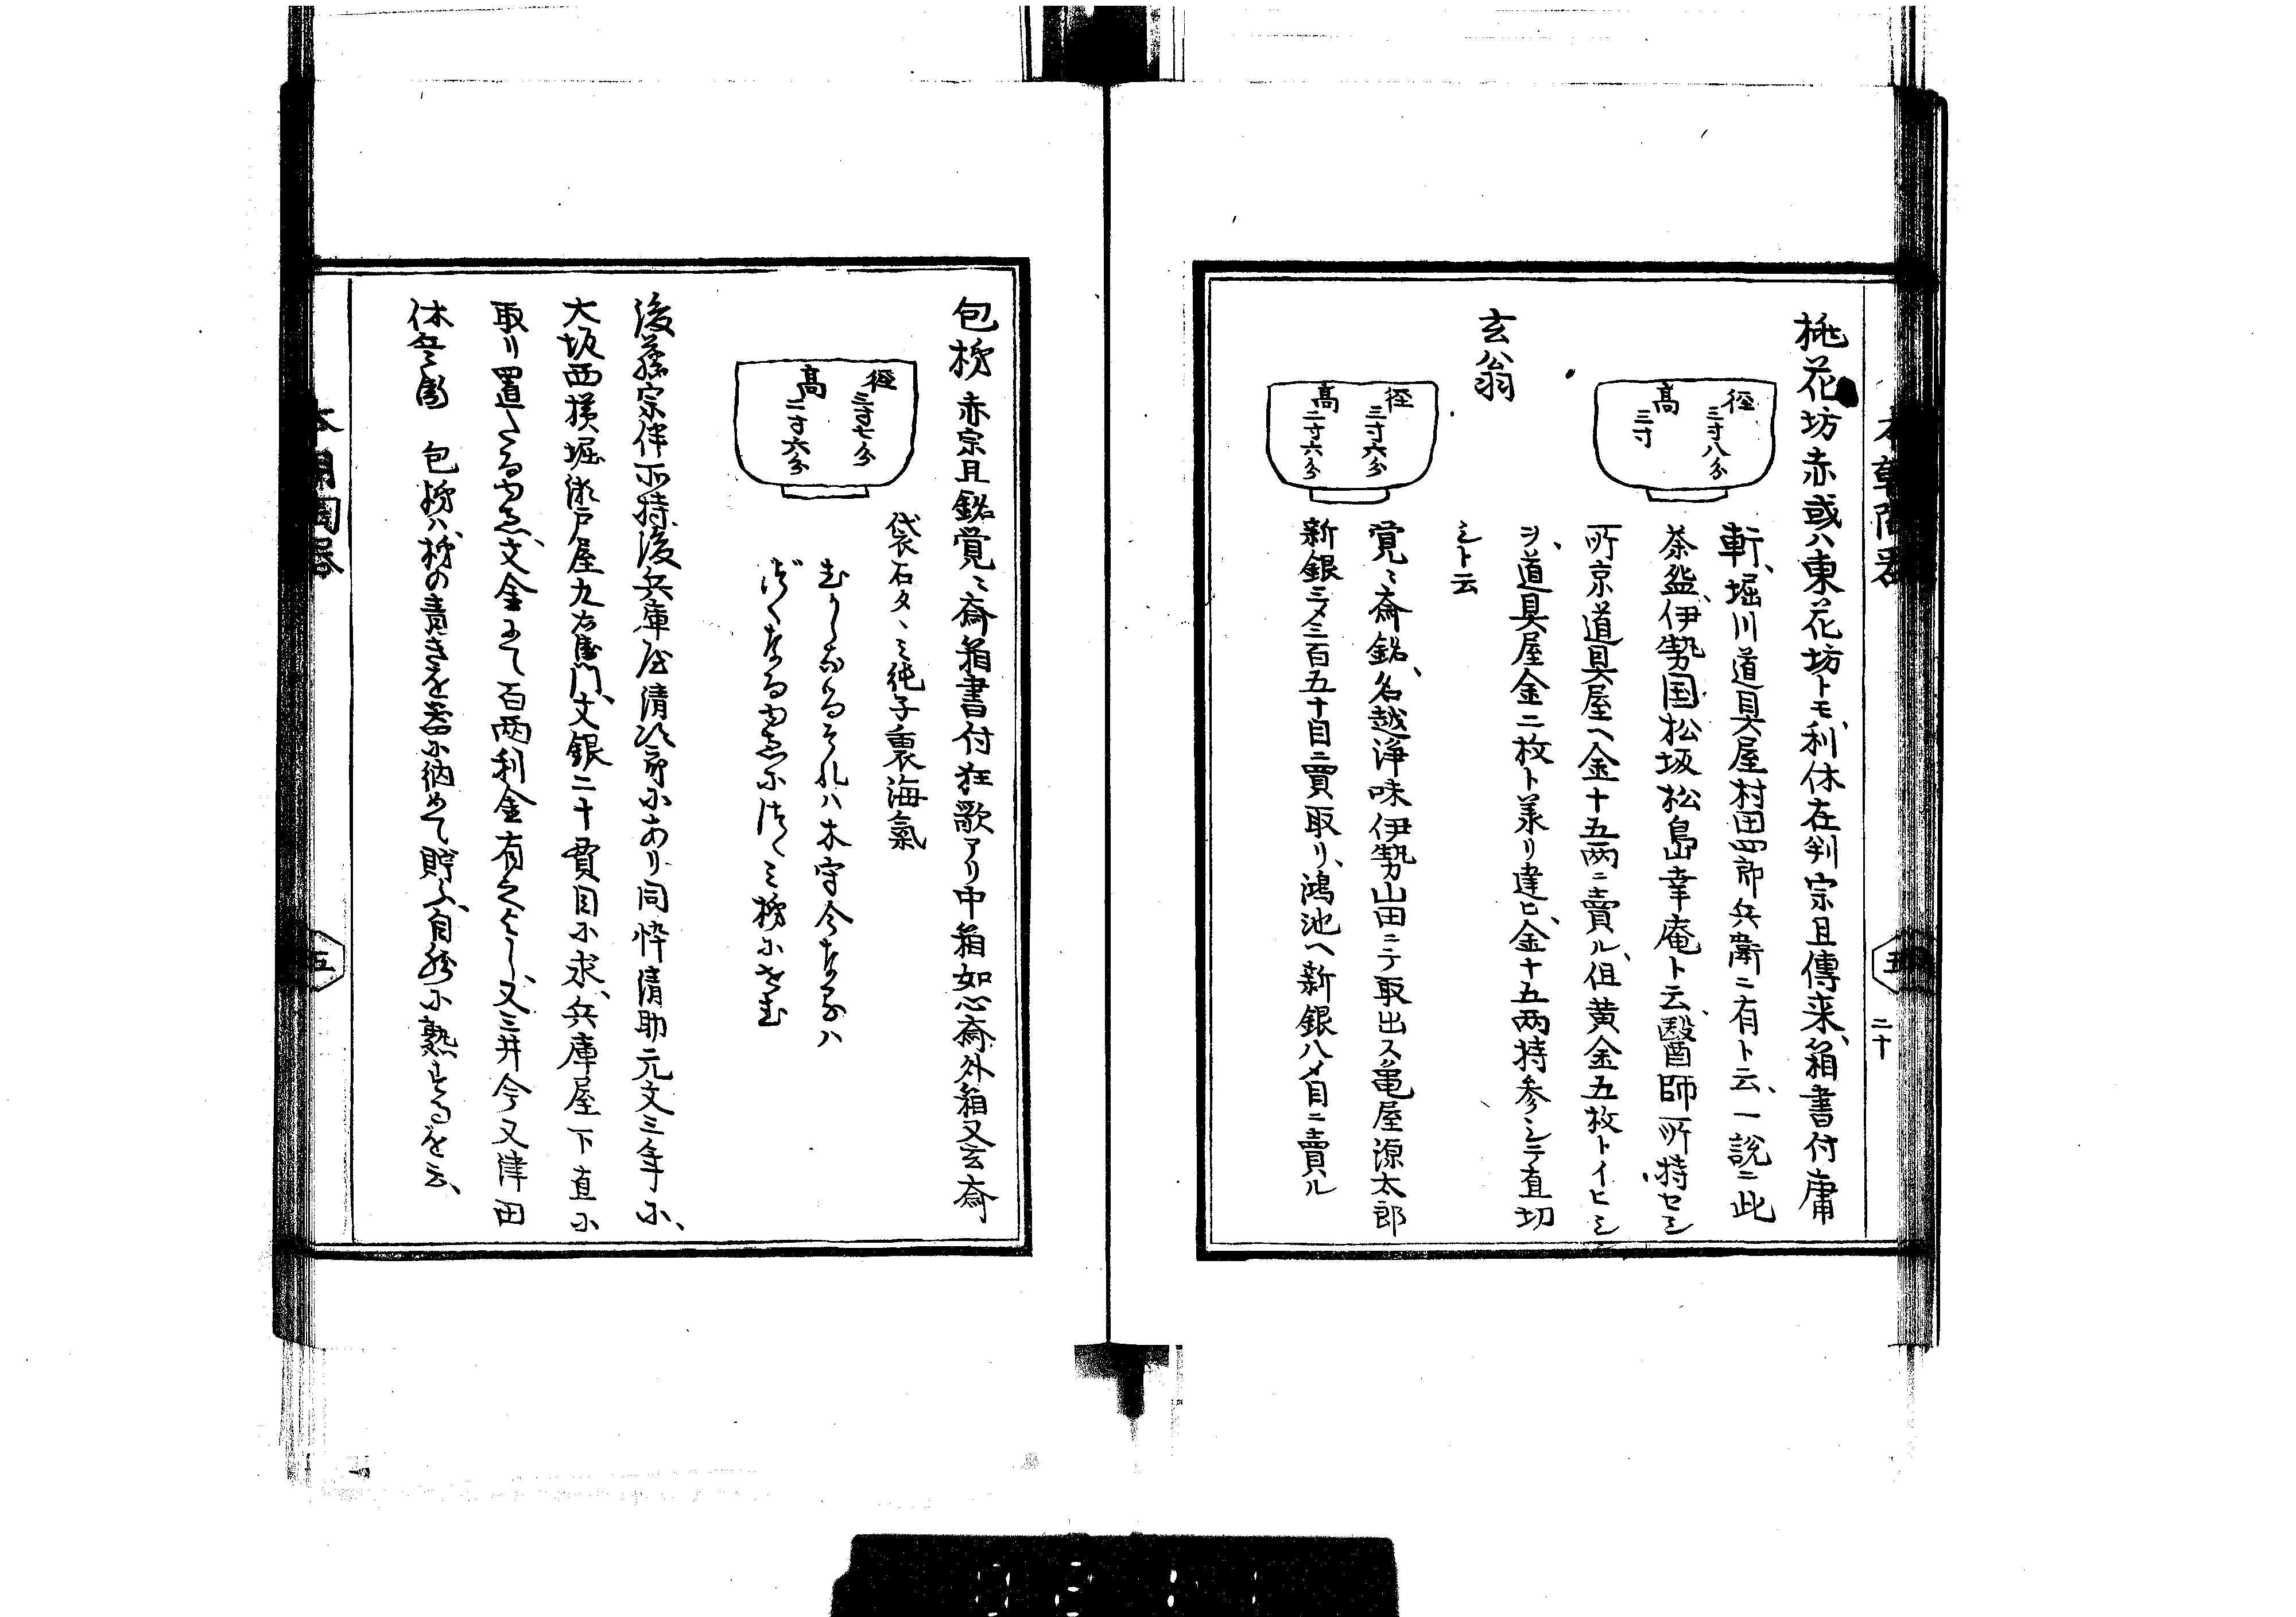 二十
桃花坊赤或ハ東花坊トモ、利休在判宗旦傳来、箱書付庸
軒、堀川道具屋村田四郎兵衞ニ有ト云、一説ニ此
茶盌、伊勢国松坂松島幸庵ト云、醫師所持セシ
所京道具屋ヘ金十五両ニ賣ル、但黄金五枚トイヒシ
ヲ、道具屋金二枚ト羕リ違ヒ、金十五両持参シテ直切
シト云
徑
三寸八分
高
三寸
玄翁
覚ミ斎銘、名越浄味伊勢山田ニテ取出ス亀屋源太郎
新銀三〆三百五十目ニ買取リ、鴻池ヘ新銀八〆目ニ賣ル
徑
三寸六分
高
二寸六分
包柿赤宗旦銘覚ミ斎箱書付狂歌アリ中箱如心斎外箱又玄斎
袋石タヽミ純子裏海氣
徑
三寸七分
高
二寸六分
ハ木守今
後藤宗伴所持、後兵庫屋清次郎にあり同忰清助元文三年に、
大坂西横堀瀬戸屋九右衞門、文銀二十貫目に求、兵庫屋下直に
取リ置たるゆゑ、文金にて百両利金有之よし、又三井今又津田
包柿ハ、柿の青きを器に納めて貯ふ、自然に熟するを云、
五